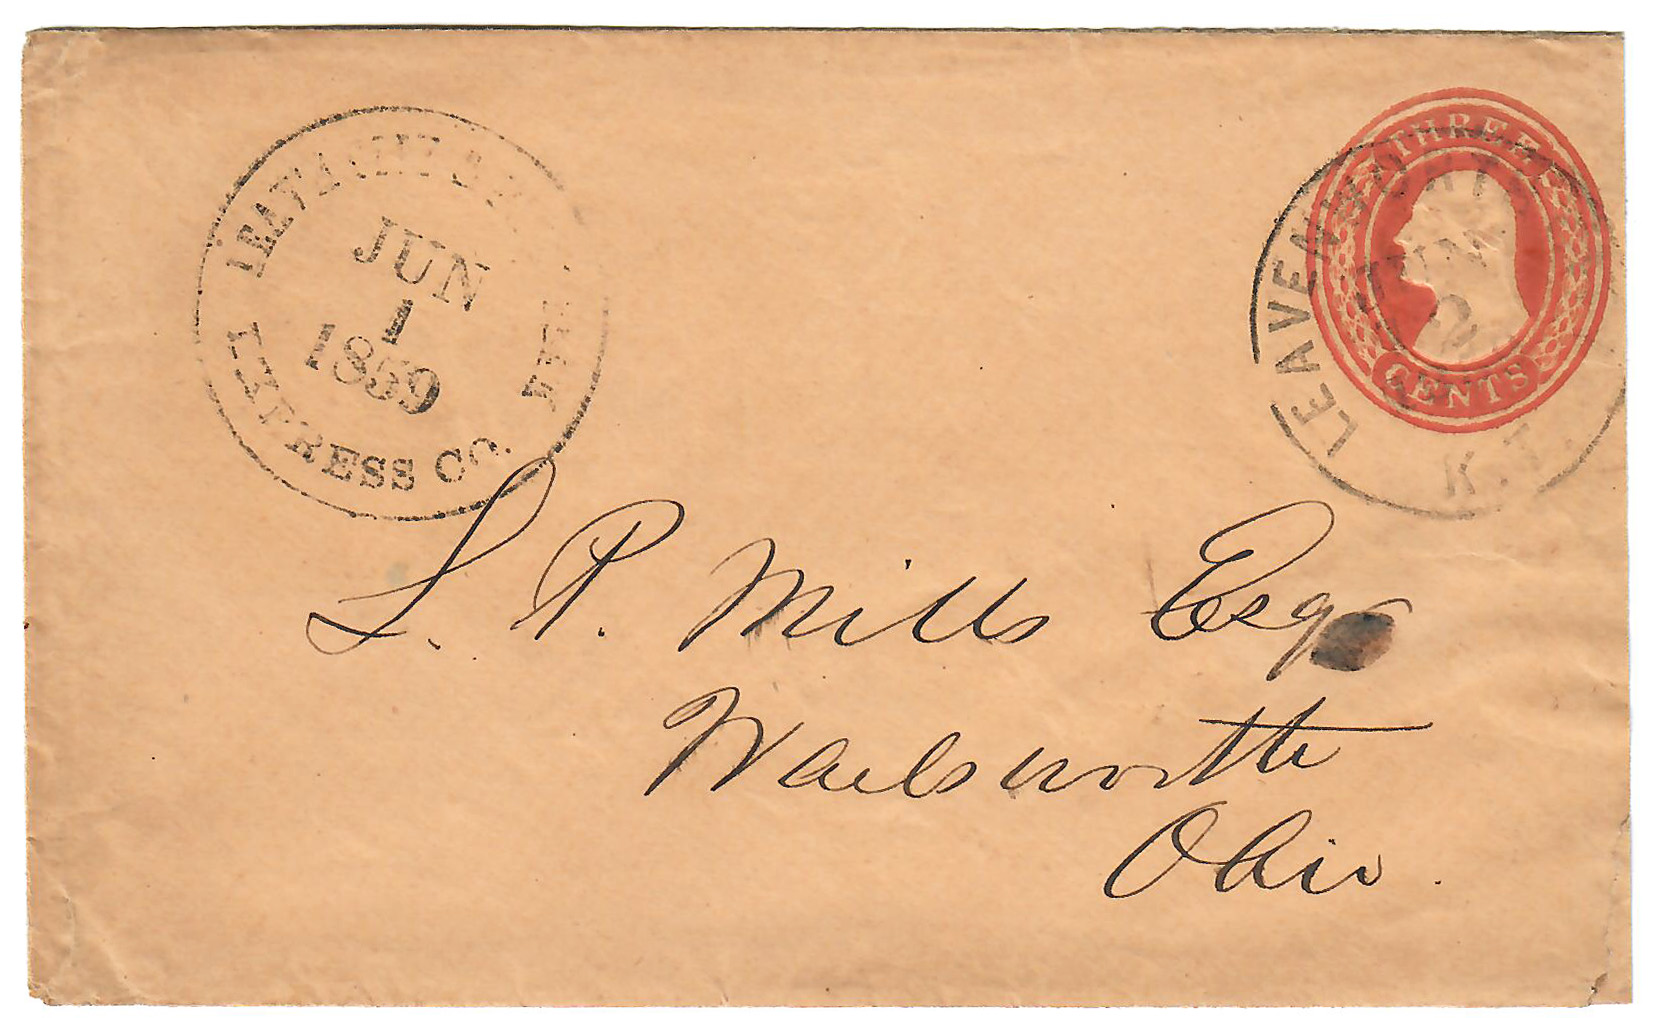 JUN
1
1859
EXPRESS CO.
THREE
CENTS
LEAVENWORTH
JUN
2
K.T.
L. P. Mills Esq
Wadsworth
Ohio.